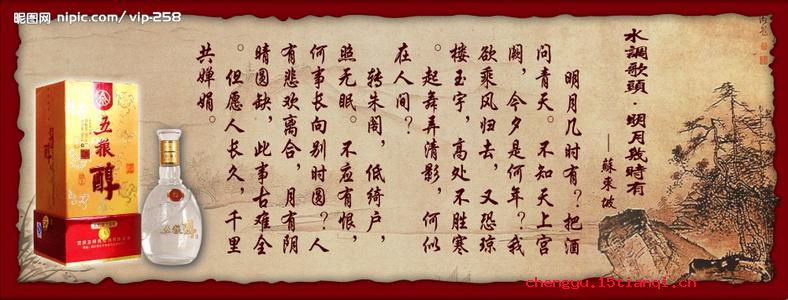 昵图网 nipic.com/vip-258
水調歌頭·明月幾時有
——蘇東坡
明月几时有?把酒
问青天。不知天上宫
阙,今夕是何年?我
欲乘风归去,又恐琼
楼玉宇,高处不胜寒
。起舞弄清影,何似
在人间?
转朱阁,低绮户,
照无眠。不应有恨,
何事长向别时圆?人
有悲欢离合,月有阴
晴圆缺,此事古难全
。但愿人长久,千里
共婵娟。
五粮醇
五粮醇
chenggu.15tianqi.cn